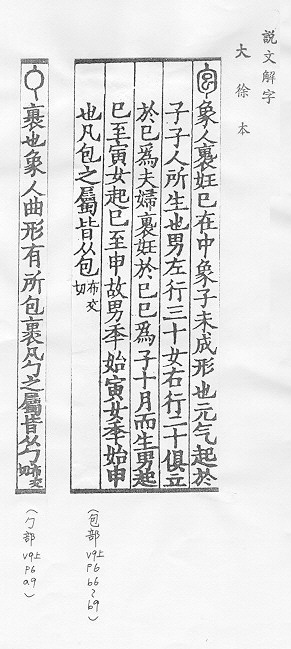 説文解字
大徐本
包象人褢妊巳在中象子未成形也元气起於
子子人所生也男左行三十女右行二十俱立
於巳爲夫婦褢妊於巳巳爲子十月而生男起
巳至寅女起巳至申故男秊始寅女秊始申
也凡包之屬皆从包布交切
(包部 v9上 p6 b6~b9)
勹裹也象人曲形有所包裹凡勹之屬皆从勹布交切
(勹部 v9上 p6 a9)